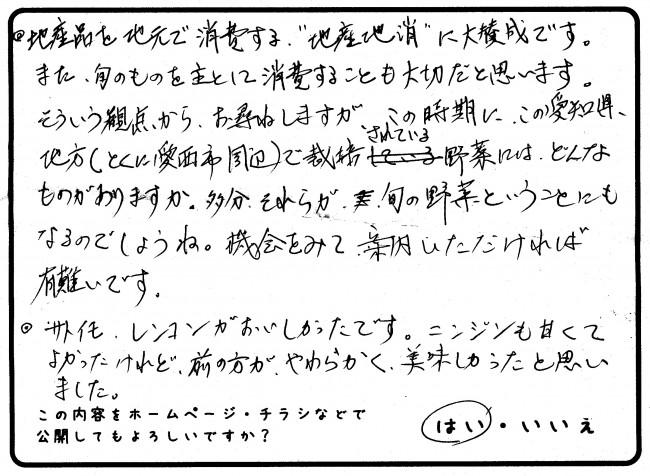 ◎地産品を地元で消費する、"地産地消"に大賛成です。
また、旬のものを主として消費することも大切だと思います。
そういう観点から、お尋ねしますが、この時期に、この愛知県、
されている
地方(とくに愛西市周辺)で栽培している野菜には、どんな
ものがありますか。多分、それらが、旬の野菜ということにも
なるのでしょうね。機会をみて、案内いただければ
有難いです。
◎サトイモ、レンコンがおいしかったです。ニンジンも甘くて
よかったけれど、前の方が、やわらかく、美味しかったと思い
ました。
この内容をホームページ・チラシなどで
公開してもよろしいですか? はい・いいえ